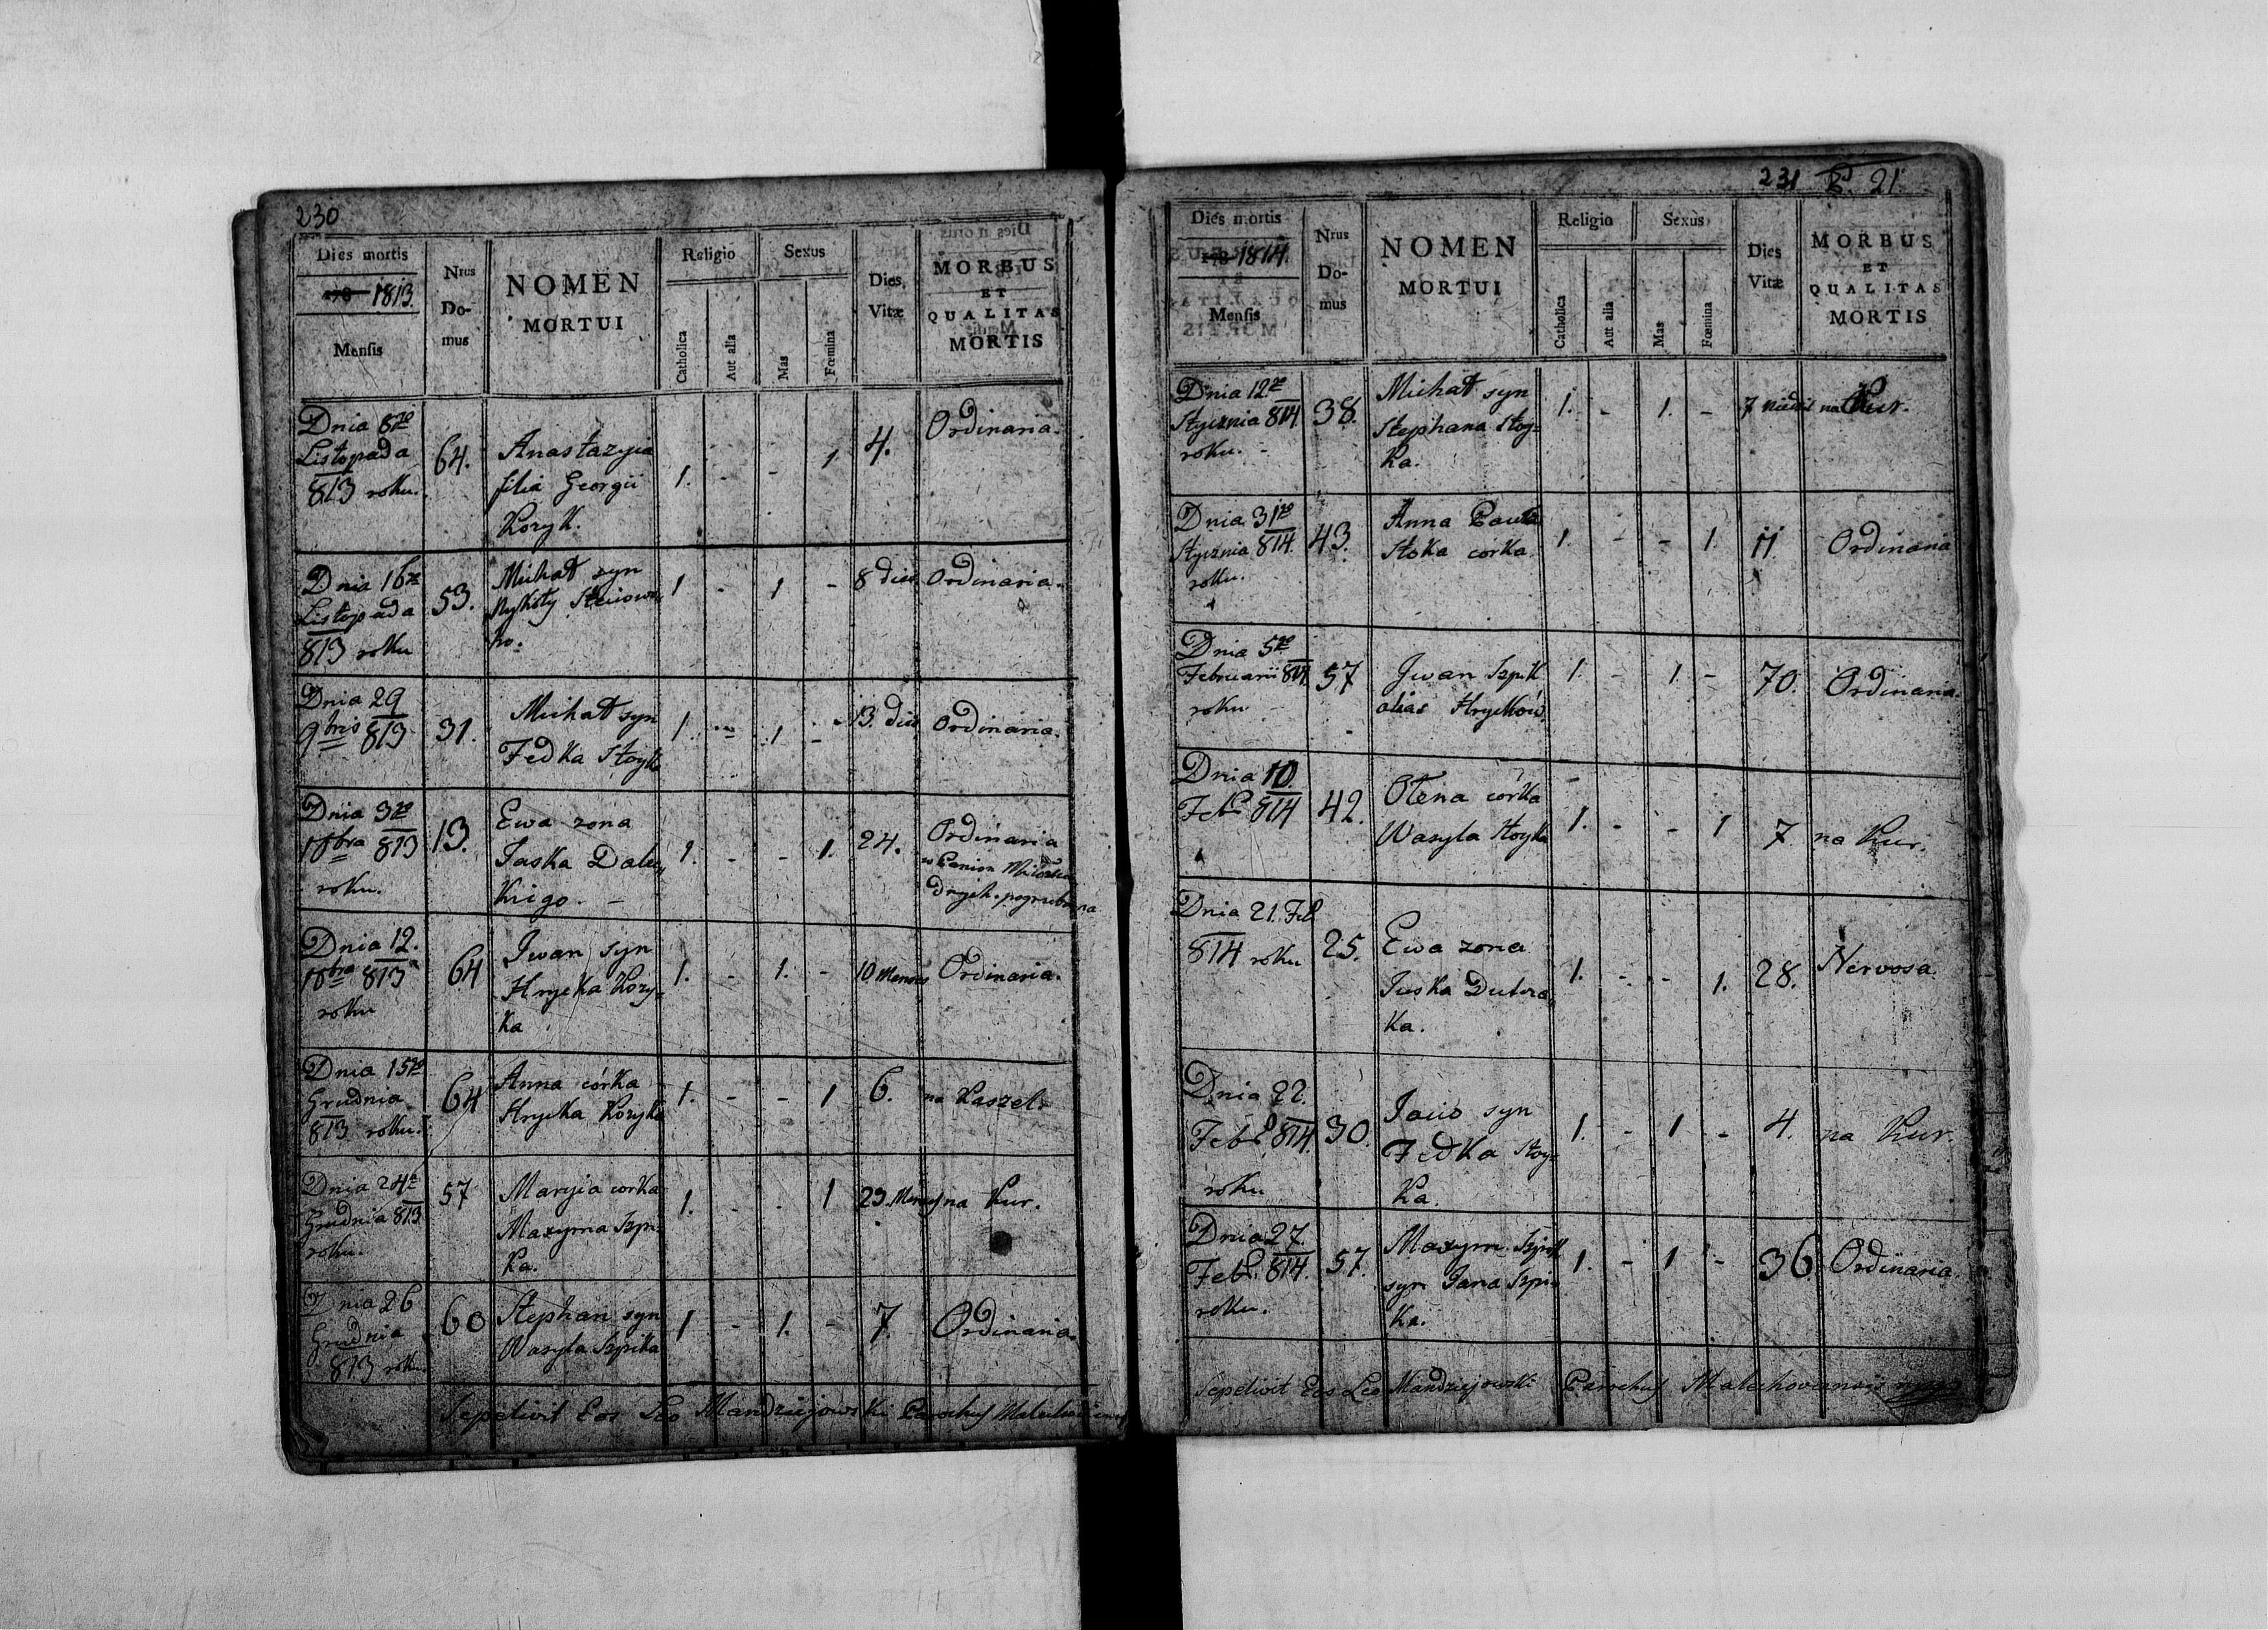 230
Dies mortis
1813.
Mensis
Nrus
Do-
mus
NOMEN
MORTUI
Religio
Catholica
Aut alia
Sexus
Mas
Fœmina
Dies
Vitæ
MORBUS
ET
QUALITAS
MORTIS
Dnia 8go
Listopada
813 roku.
64.
Anastazyia
filia Georgii
Koryk.
1.
-
-
1
4.
Ordinaria.
Dnia 16
Listopada
813 roku
53.
Michał syn
Mykoły
ko.
1
-
1
-
8 dies
Ordinaria.
Dnia 29
9bris 813
31.
Michał syn
Fedka Stoyk
1.
-
1
-
13. dies
Ordinaria.
Dnia 3
10bra 813
roku.
13.
Ewa zona
Jaska Dale
kiego. -
1.
-
-
1.
24.
Ordinaria
w
pogrzebana
Dnia 12.
10bra 813
roku
64
Iwan syn
Hryćka Kory-
ka
1.
-
1.
-
10 Menses
Ordinaria.
Dnia 15go
Grudnia
813 roku.
64
Anna córka
Hryćka Koryka
1.
-
-
1
6.
na Kaszel.
Dnia 24
Grudnia 813
roku.
57
Maryia corka
Maxyma Szpi-
ka.
1.
-
-
1
na Kur.
Dnia 26
Grudnia
813 roku
60
Stephan syn
Wasyla Szpika
1
-
1.
-
7.
Ordinaria.
Sepelivit Eos Leo Mandziejowski Parochus
231 21
Dies mortis
1814.
Mensis
Nrus
Do-
mus
NOMEN
MORTUI
Religio
Catholica
Aut alia
Sexus
Mas
Fœmina
Dies
Vitæ
MORBUS
ET
QUALITAS
MORTIS
Dnia 12
Stycznia 814
roku. -
38.
Michał syn
Stephana Stoy-
ka.
1.
-
1.
-
7 na Kur.
Dnia 31go
Stycznia 814.
roku.
43.
Anna
córka.
1.
-
-
1.
11.
Ordinaria
Dnia 5
Februarii 814
roku
57
Iwan Szpik
alias Hryćków
1.
-
1.
-
70.
Ordinaria.
Dnia 10
Feb 814
42.
Ołena córka
Wasyla Stoyka
1.
-
-
1
7
na Kur.
Dnia 21. Feb
814 roku
25.
Ewa zona
Juska
ka.
1.
-
-
1.
28.
Nervosa.
Dnia 22.
Feb. 814.
roku
30.
syn
Fedka Stoy-
ka.
1.
-
1
-
4.
na Kur.
Dnia 27.
Feb. 814.
roku.
57.
Maxym Szpik
syn Jana Szpi-
ka.
1.
-
1
-
36
Ordinaria.
Sepelivit Eos Leo Mandziejowski Parochus Malechoviensis